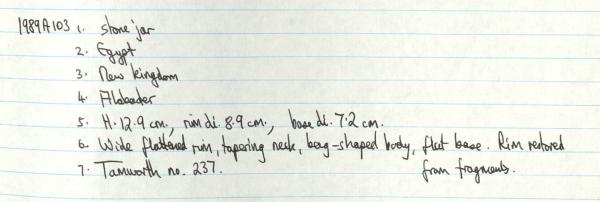 1989A103 1. stone jar
2. Egypt
3. New kingdom
4. Alabaster
5. H. 12.9 cm., rim di. 8.9 cm., base di. 7.2 cm.
6. Wide flattened rim, tapering neck, bag-shaped body, flat base. Rim restored
from fragments.
7. Tamworth no. 237.